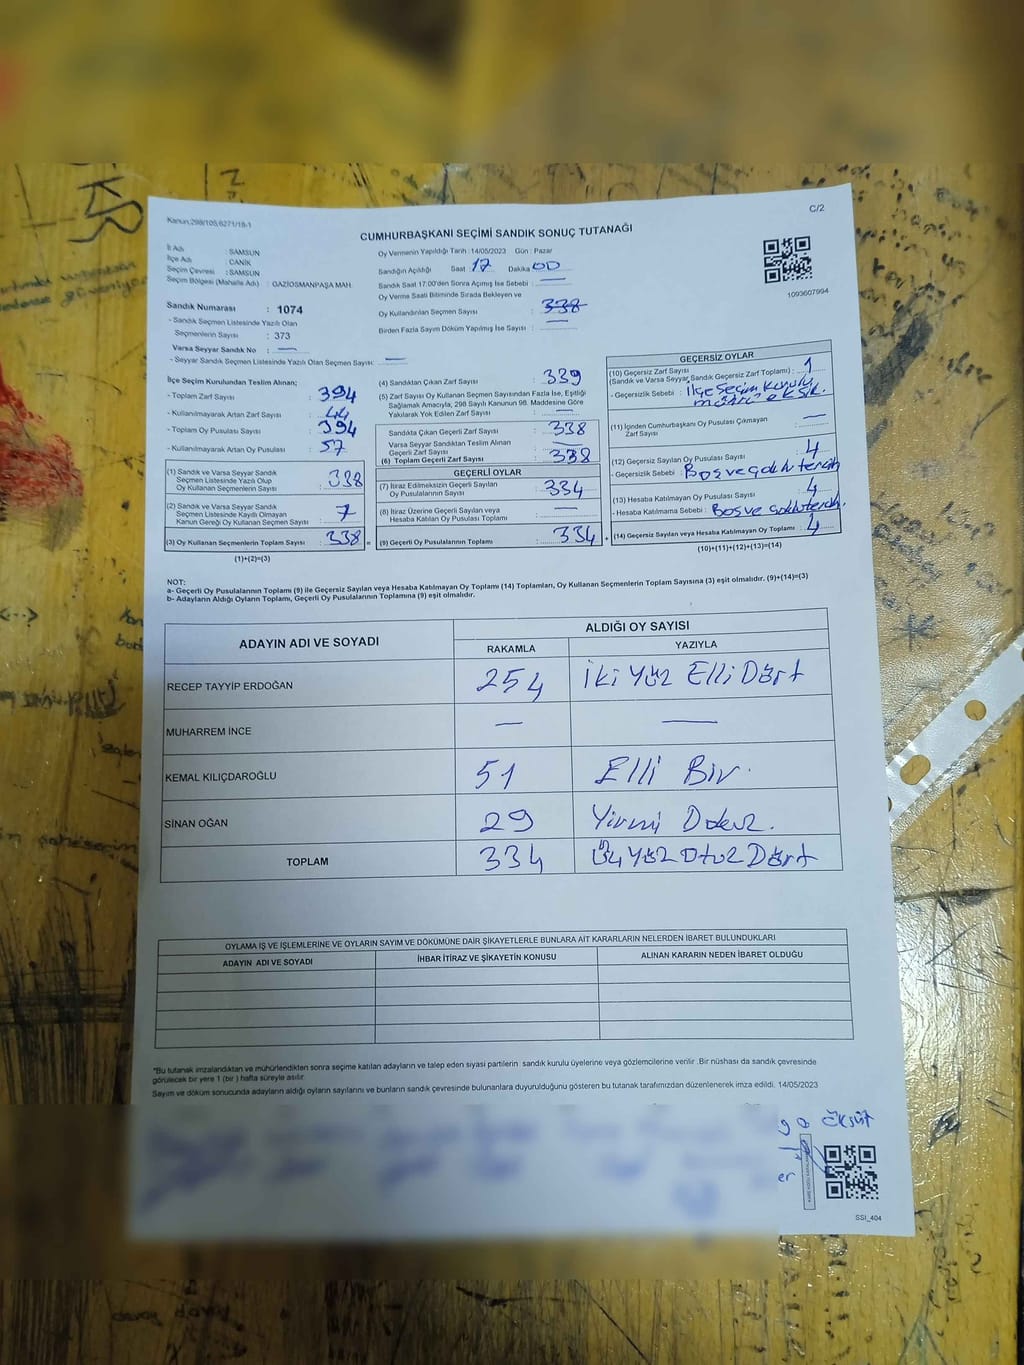 Kanun:298/105,6271/18-1
C/2
CUMHURBAŞKANI SEÇİMİ SANDIK SONUÇ TUTANAĞI
İl Adı : SAMSUN
İlçe Adı : CANİK
Seçim Çevresi : SAMSUN
Seçim Bölgesi (Mahalle Adı) : GAZİOSMANPAŞA MAH.
Oy Vermenin Yapıldığı Tarih :14/05/2023 Gün : Pazar
Sandığın Açıldığı Saat 17 Dakika 00
Sandık Saat 17:00'den Sonra Açımış İse Sebebi : —
Oy Verme Saati Bitiminde Sırada Bekleyen ve
Oy Kullandırılan Seçmen Sayısı : 338
Birden Fazla Sayım Döküm Yapılmış İse Sayısı : —
1093607994
Sandık Numarası : 1074
- Sandık Seçmen Listesinde Yazılı Olan
Seçmenlerin Sayısı : 373
Varsa Seyyar Sandık No : —
- Seyyar Sandık Seçmen Listesinde Yazılı Olan Seçmen Sayısı: —
İlçe Seçim Kurulundan Teslim Alınan;
- Toplam Zarf Sayısı : 394
- Kullanılmayarak Artan Zarf Sayısı : 44
- Toplam Oy Pusulası Sayısı : 394
- Kullanılmayarak Artan Oy Pusulası : 57
(1) Sandık ve Varsa Seyyar Sandık
Seçmen Listesinde Yazılı Olup
Oy Kullanan Seçmenlerin Sayısı : 338
(2) Sandık ve Varsa Seyyar Sandık
Seçmen Listesinde Kayıtlı Olmayan
Kanun Gereği Oy Kullanan Seçmen Sayısı : 7
(3) Oy Kullanan Seçmenlerin Toplam Sayısı : 338 =
(1)+(2)=(3)
(4) Sandıktan Çıkan Zarf Sayısı : 339
(5) Zarf Sayısı Oy Kullanan Seçmen Sayısından Fazla İse, Eşitliği
Sağlamak Amacıyla, 298 Sayılı Kanunun 98. Maddesine Göre
Yakılarak Yok Edilen Zarf Sayısı : —
Sandıkta Çıkan Geçerli Zarf Sayısı : 338
Varsa Seyyar Sandıktan Teslim Alınan
Geçerli Zarf Sayısı : —
(6) Toplam Geçerli Zarf Sayısı : 338
GEÇERLİ OYLAR
(7) İtiraz Edilmeksizin Geçerli Sayılan
Oy Pusulalarının Sayısı : 334
(8) İtiraz Üzerine Geçerli Sayılan veya
Hesaba Katılan Oy Pusulası Toplamı : —
(9) Geçerli Oy Pusulalarının Toplamı : 334 +
GEÇERSİZ OYLAR
(10) Geçersiz Zarf Sayısı
(Sandık ve Varsa Seyyar Sandık Geçersiz Zarf Toplamı) : 1
- Geçersizlik Sebebi : ilçe Seçim Kurulu
mührü eksik.
(11) İçinden Cumhurbaşkanı Oy Pusulası Çıkmayan
Zarf Sayısı : —
(12) Geçersiz Sayılan Oy Pusulası Sayısı : 4
- Geçersizlik Sebebi : Boş ve çoklu tercih
(13) Hesaba Katılmayan Oy Pusulası Sayısı : 4
- Hesaba Katılmama Sebebi : Boş ve çoklu tercih.
(14) Geçersiz Sayılan veya Hesaba Katılmayan Oy Toplamı : 4
(10)+(11)+(12)+(13)=(14)
NOT:
a- Geçerli Oy Pusulalarının Toplamı (9) ile Geçersiz Sayılan veya Hesaba Katılmayan Oy Toplamı (14) Toplamları, Oy Kullanan Seçmenlerin Toplam Sayısına (3) eşit olmalıdır. (9)+(14)=(3)
b- Adayların Aldığı Oyların Toplamı, Geçerli Oy Pusulalarının Toplamına (9) eşit olmalıdır.
ADAYIN ADI VE SOYADI
ALDIĞI OY SAYISI
RAKAMLA YAZIYLA
RECEP TAYYİP ERDOĞAN 254 İki Yüz Elli Dört
MUHARREM İNCE — —
KEMAL KILIÇDAROĞLU 51 Elli Bir.
SİNAN OĞAN 29 Yirmi Dokuz.
TOPLAM 334 Üç Yüz Otuz Dört
OYLAMA İŞ VE İŞLEMLERİNE VE OYLARIN SAYIM VE DÖKÜMÜNE DAİR ŞİKAYETLERLE BUNLARA AİT KARARLARIN NELERDEN İBARET BULUNDUKLARI
ADAYIN ADI VE SOYADI İHBAR İTİRAZ VE ŞİKAYETİN KONUSU ALINAN KARARIN NEDEN İBARET OLDUĞU
*Bu tutanak imzalandıktan ve mühürlendikten sonra seçime katılan adayların ve talep eden siyasi partilerin sandık kurulu üyelerine veya gözlemcilerine verilir .Bir nüshası da sandık çevresinde
görülecek bir yere 1 (bir ) hafta süreyle asılır.
Sayım ve döküm sonucunda adayların aldığı oyların sayılarını ve bunların sandık çevresinde bulunanlara duyurulduğunu gösteren bu tutanak tarafımızdan düzenlenerek imza edildi. 14/05/2023
ÖKSÜT
er
SSI_404